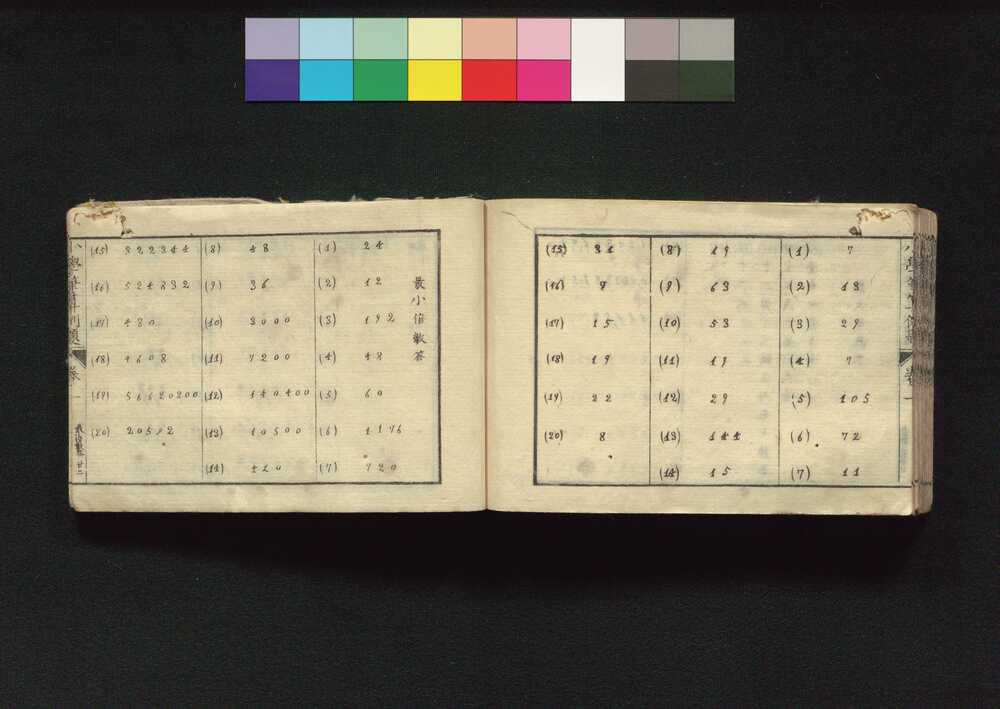 (1) 7
(2) 13
(3) 29
(4) 7
(5) 105
(6) 72
(7) 11
(8) 19
(9) 63
(10) 53
(11) 19
(12) 29
(13) 144
(14) 15
(15) 34
(16) 9
(17) 15
(18) 19
(19) 22
(20) 8
最小倍數答
(1) 24
(2) 12
(3) 192
(4) 48
(5) 60
(6) 1176
(7) 720
(8) 48
(9) 36
(10) 3000
(11) 7200
(12) 140400
(13) 10500
(14) 420
(15) 322344
(16) 524832
(17) 480
(18) 4608
(19) 56620200
(20) 20592
卷一
廿二